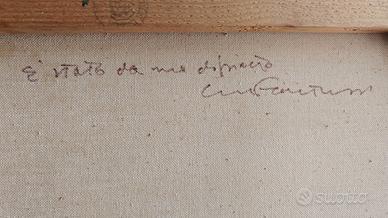 È stato da me dipinto
subito